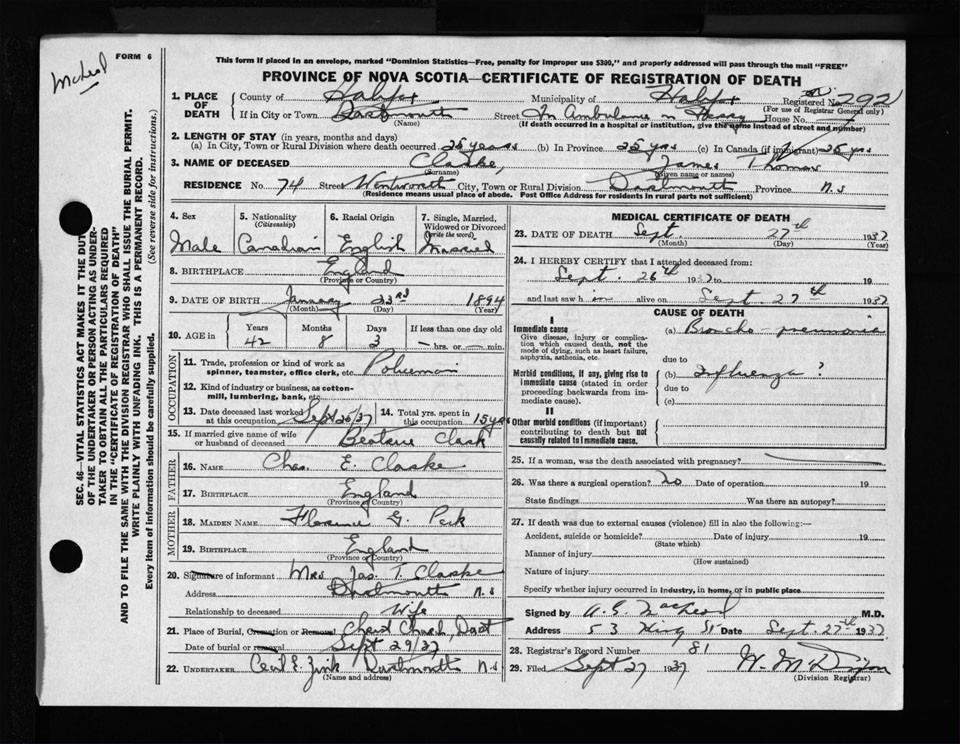 McLeod
FORM 6
This form if placed in an envelope, marked "Dominion Statistics—Free, penalty for improper use $300," and properly addressed will pass through the mail "FREE"
PROVINCE OF NOVA SCOTIA—CERTIFICATE OF REGISTRATION OF DEATH
1. PLACE OF DEATH County of Halifax Municipality of Halifax Registered No. 292
(For use of Registrar General only)
If in City or Town Dartmouth Street In Ambulance House No.
(Name) (If death occurred in a hospital or institution, give the name instead of street and number)
2. LENGTH OF STAY (in years, months and days)
(a) In City, Town or Rural Division where death occurred 25 years (b) In Province 25 yrs (c) In Canada (if immigrant) 25 yrs
3. NAME OF DECEASED Clarke, James Thomas
(Surname) (Given name or names)
RESIDENCE No. 74 Street Wentworth City, Town or Rural Division Dartmouth Province N.S
(Residence means usual place of abode. Post Office Address for residents in rural parts not sufficient)
4. Sex 5. Nationality (Citizenship) 6. Racial Origin 7. Single, Married, Widowed or Divorced (Write the word)
Male Canadian English Married
8. BIRTHPLACE England
(Province or Country)
9. DATE OF BIRTH January 23rd 1894
(Month) (Day) (Year)
10. AGE in Years Months Days If less than one day old
42 8 3 — hrs. or — min.
OCCUPATION
11. Trade, profession or kind of work as spinner, teamster, office clerk, etc. Policeman
12. Kind of industry or business, as cotton-mill, lumbering, bank, etc.
13. Date deceased last worked at this occupation Sept 25/37 14. Total yrs. spent in this occupation 15 yrs
15. If married give name of wife or husband of deceased Beatrice Clark
FATHER
16. NAME Chas. E. Clarke
17. BIRTHPLACE England
(Province or Country)
MOTHER
18. MAIDEN NAME Florence G. Peck
19. BIRTHPLACE England
(Province or Country)
20. Signature of informant Mrs Jas. T. Clarke
Address Dartmouth N.S
Relationship to deceased Wife
21. Place of Burial, Cremation or Removal Christ Church, Dart
Date of burial or removal Sept 29/37
22. UNDERTAKER Cecil E. Zink Dartmouth N.S
(Name and address)
MEDICAL CERTIFICATE OF DEATH
23. DATE OF DEATH Sept. 27th 1937
(Month) (Day) (Year)
24. I HEREBY CERTIFY that I attended deceased from:
Sept. 26th 1937 to 19
and last saw him alive on Sept. 27th 1937
CAUSE OF DEATH
I
Immediate cause
Give disease, injury or complication which caused death, not the mode of dying, such as heart failure, asphyxia, asthenia, etc.
(a) Broncho-pneumonia
due to
Morbid conditions, if any, giving rise to immediate cause (stated in order proceeding backwards from immediate cause).
(b) Influenza?
due to
(c)
II
Other morbid conditions (if important) contributing to death but not causally related to immediate cause.
25. If a woman, was the death associated with pregnancy?
26. Was there a surgical operation? No Date of operation 19
State findings Was there an autopsy?
27. If death was due to external causes (violence) fill in also the following:—
Accident, suicide or homicide? Date of injury 19
(State which)
Manner of injury
(How sustained)
Nature of injury
Specify whether injury occurred in industry, in home, or in public place
Signed by A. G. MacLeod M.D.
Address 53 King St Date Sept. 27th 1937
28. Registrar's Record Number 81
29. Filed Sept 27 1937 W. McDixon
(Division Registrar)
SEC. 46—VITAL STATISTICS ACT MAKES IT THE DUTY
OF THE UNDERTAKER OR PERSON ACTING AS UNDER-
TAKER TO OBTAIN ALL THE PARTICULARS REQUIRED
IN THE "CERTIFICATE OF REGISTRATION OF DEATH"
AND TO FILE THE SAME WITH THE DIVISION REGISTRAR WHO SHALL ISSUE THE BURIAL PERMIT.
WRITE PLAINLY WITH UNFADING INK. THIS IS A PERMANENT RECORD.
Every item of information should be carefully supplied. (See reverse side for instructions.)